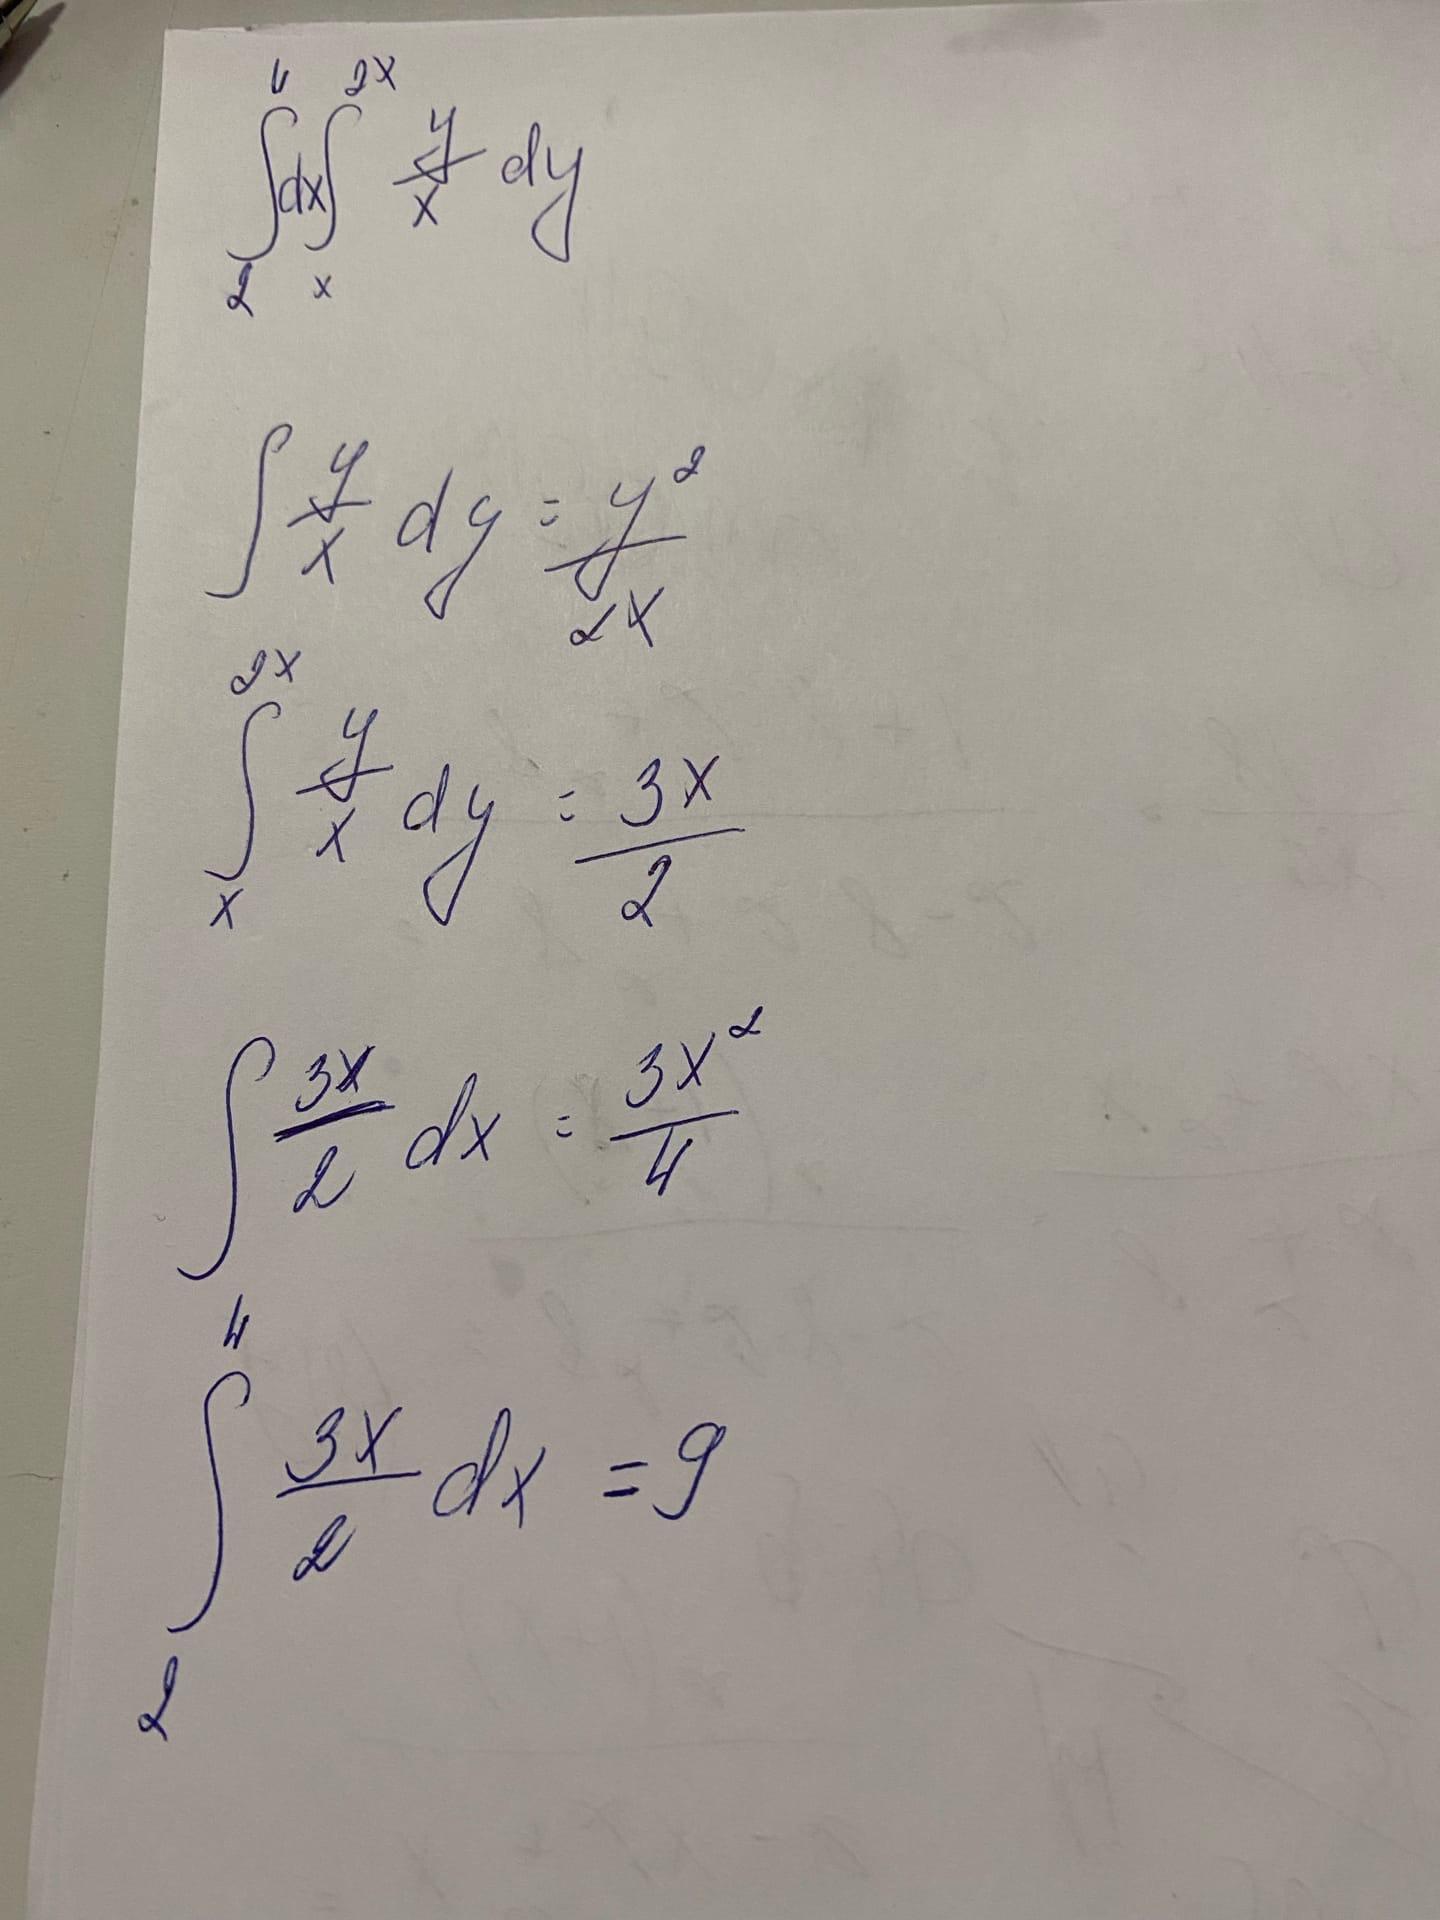 ∫₂⁴ dx ∫ₓ²ˣ y/x dy
∫ y/x dy = y²/2x
∫ₓ²ˣ y/x dy = 3x/2
∫ 3x/2 dx = 3x²/4
∫₂⁴ 3x/2 dx = 9